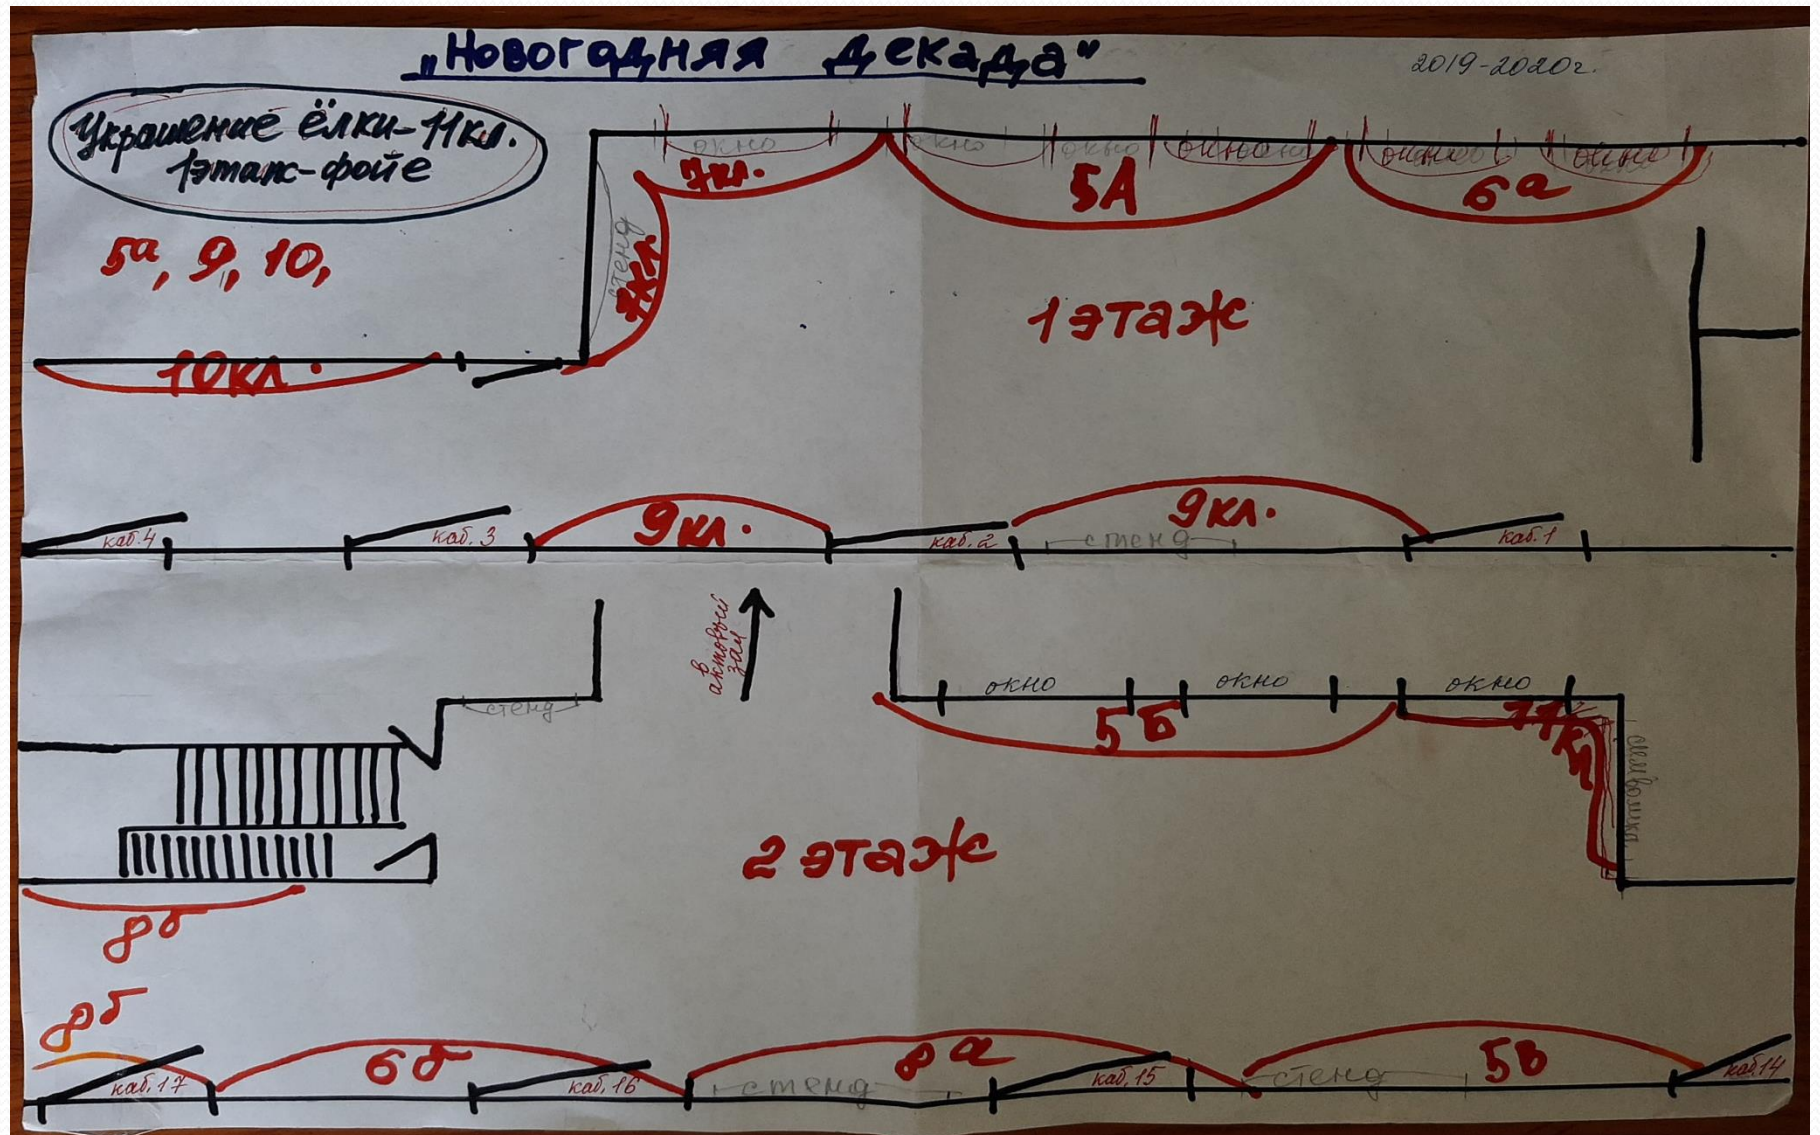 „Новогодняя декада"
2019-2020г.
Украшение ёлки-11кл.
1этаж-фойе
5а, 9, 10,
окно
окно
окно
окно
окно
окно
7кл.
5А
6а
стенд
7кл.
1 этаж
10кл.
9кл.
9кл.
каб.4
каб.3
каб.2
стенд
каб.1
в
актовый
зал
стенд
окно
окно
окно
5Б
11кл
символика
2 этаж
8б
8б
6б
8а
5в
каб.17
каб.16
стенд
каб.15
стенд
каб.14